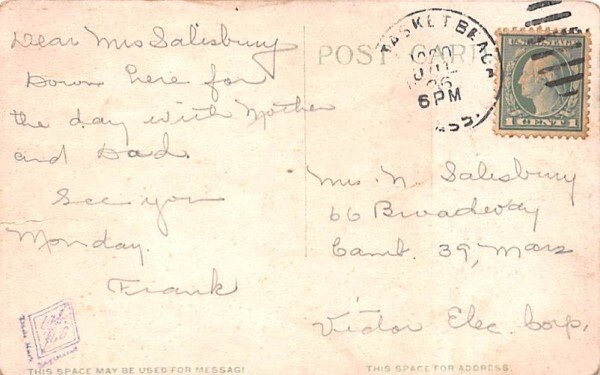 Dear Mrs Salisbury
Down here for
the day with Mother
and Dad.
See you
Monday.
Frank
POST CARD
TASKET BEACH
1920
JUL
26
6 PM
ASS.
U.S. POSTAGE
1 CENT 1
Mrs. N. Salisbury
66 Broadway
Camb. 39, Mass
Victor Elec. Corp.
Trade Mark
THIS SPACE MAY BE USED FOR MESSAGE
THIS SPACE FOR ADDRESS.